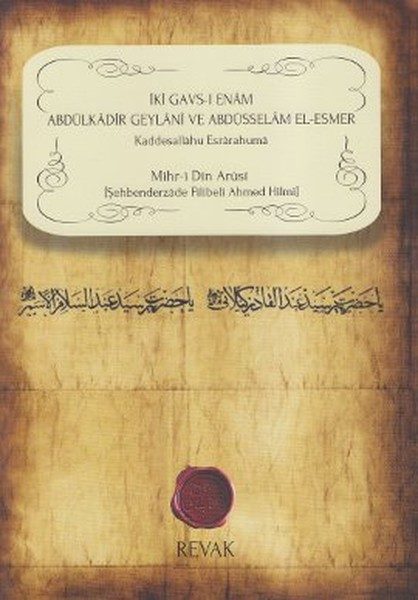 İKİ GAVS-I ENÂM
ABDÜLKÂDİR GEYLÂNÎ VE ABDÜSSELÂM EL-ESMER
Kaddesallâhu Esrârahumâ
Mihr-i Dîn Arûsî
[Şehbenderzâde Filibeli Ahmed Hilmi]
يا حضرت سيد عبد القادر كيلانى يا حضرت سيد عبد السلام الاسمر
REVAK